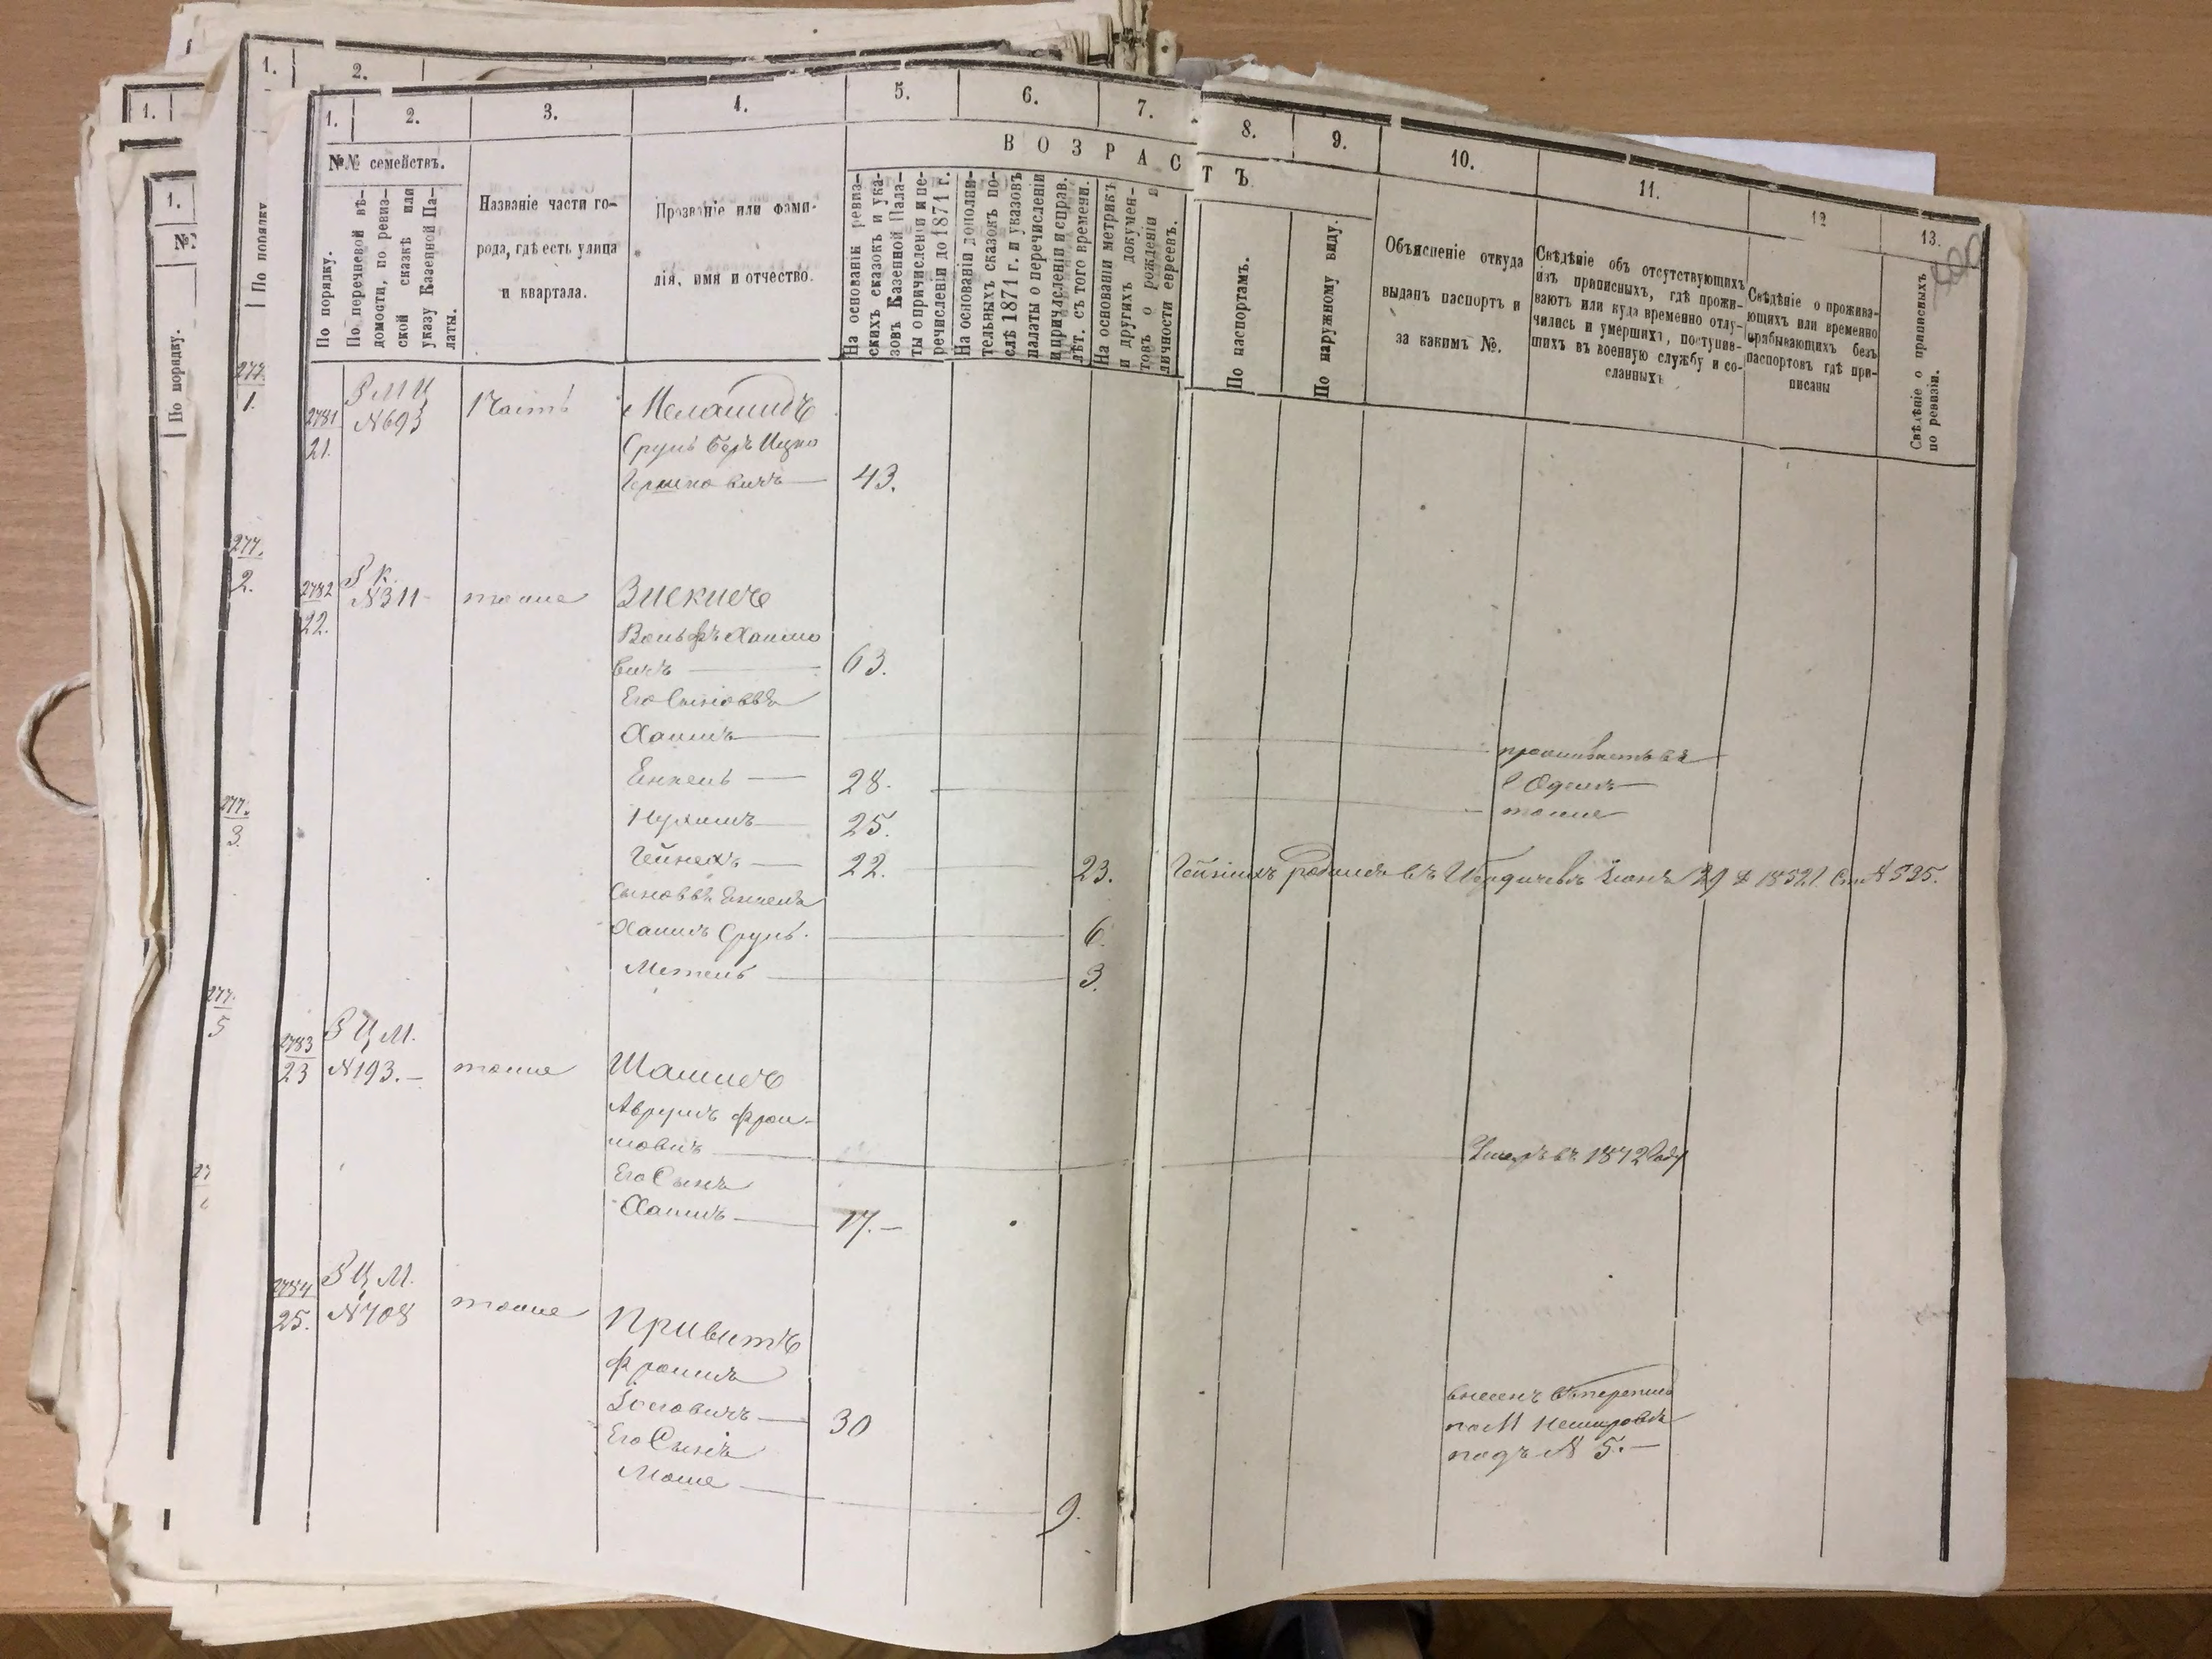 1.
2.
1.
1.
№
По порядку.
По порядку
1.
2.
3.
4.
5.
6.
7.
8.
9.
10.
11.
12
13.
№№ семействъ.
ВОЗРАСТЪ
По порядку.
По перечневой вѣ-
домости, по ревиз-
ской сказкѣ или
указу Казенной Па-
латы.
Названіе части го-
рода, гдѣ есть улица
и квартала.
Прозваніе или фами-
лія, имя и отчество.
На основаніи ревиз-
скихъ сказокъ и ука-
зовъ Казенной Пала-
ты о причисленіи и пе-
речисленіи до 1871 г.
На основаніи дополни-
тельныхъ сказокъ по-
слѣ 1871 г. и указовъ
палаты о перечисленіи
и причисленіи и справ.
лѣт. съ того времени.
На основаніи метрикъ
и другихъ докумен-
товъ о рожденіи и
личности евреевъ.
По паспортамъ.
По наружному виду.
Объясненіе откуда
выданъ паспортъ и
за какимъ №.
Свѣдѣніе объ отсутствующихъ
изъ приписныхъ, гдѣ прожи-
ваютъ или куда временно отлу-
чились и умершихъ, поступив-
шихъ въ военную службу и со-
сланныхъ
Свѣдѣніе о прожива-
ющихъ или временно
прябывающихъ безъ
паспортовъ гдѣ при-
писаны
Свѣдѣніе о приписныхъ
по ревизіи.
277.
1.
277.
2.
277.
3.
277.
5
27
2781
21.
Р М Ц
№693
1 Часть
Меламидъ
Сруль Беръ Ицко
Гершковичъ — 43.
2782
22.
Р К.
№311 -
тоже
Зискисъ
Вольфъ Хаимо
вичъ — 63.
Его Сыновья
Хаимъ — проживаетъ въ
г Одесѣ —
Енкель — 28. — тоже
Нухимъ — 25.
Гейнехъ — 22. — 23.
Гейнихъ родился въ Бердичевѣ Іюня 29 д 1852 г. Ст №525.
Сыновья Енкеля
Хаимъ Сруль. — 6.
Мотель — 3.
2783
23
Р Ц М.
№193. —
тоже
Аврумъ Фрои-
мовичъ — Умеръ въ 1872 году
Его Сынъ
Хаимъ — 17. —
2784
25.
Р Ц М.
№708
тоже
Привитъ
Фроимъ
Іосіовичъ — 30
внесенъ въ перепись
по М Немировѣ
подъ № 5. —
Его Сынъ
Моше — 9.